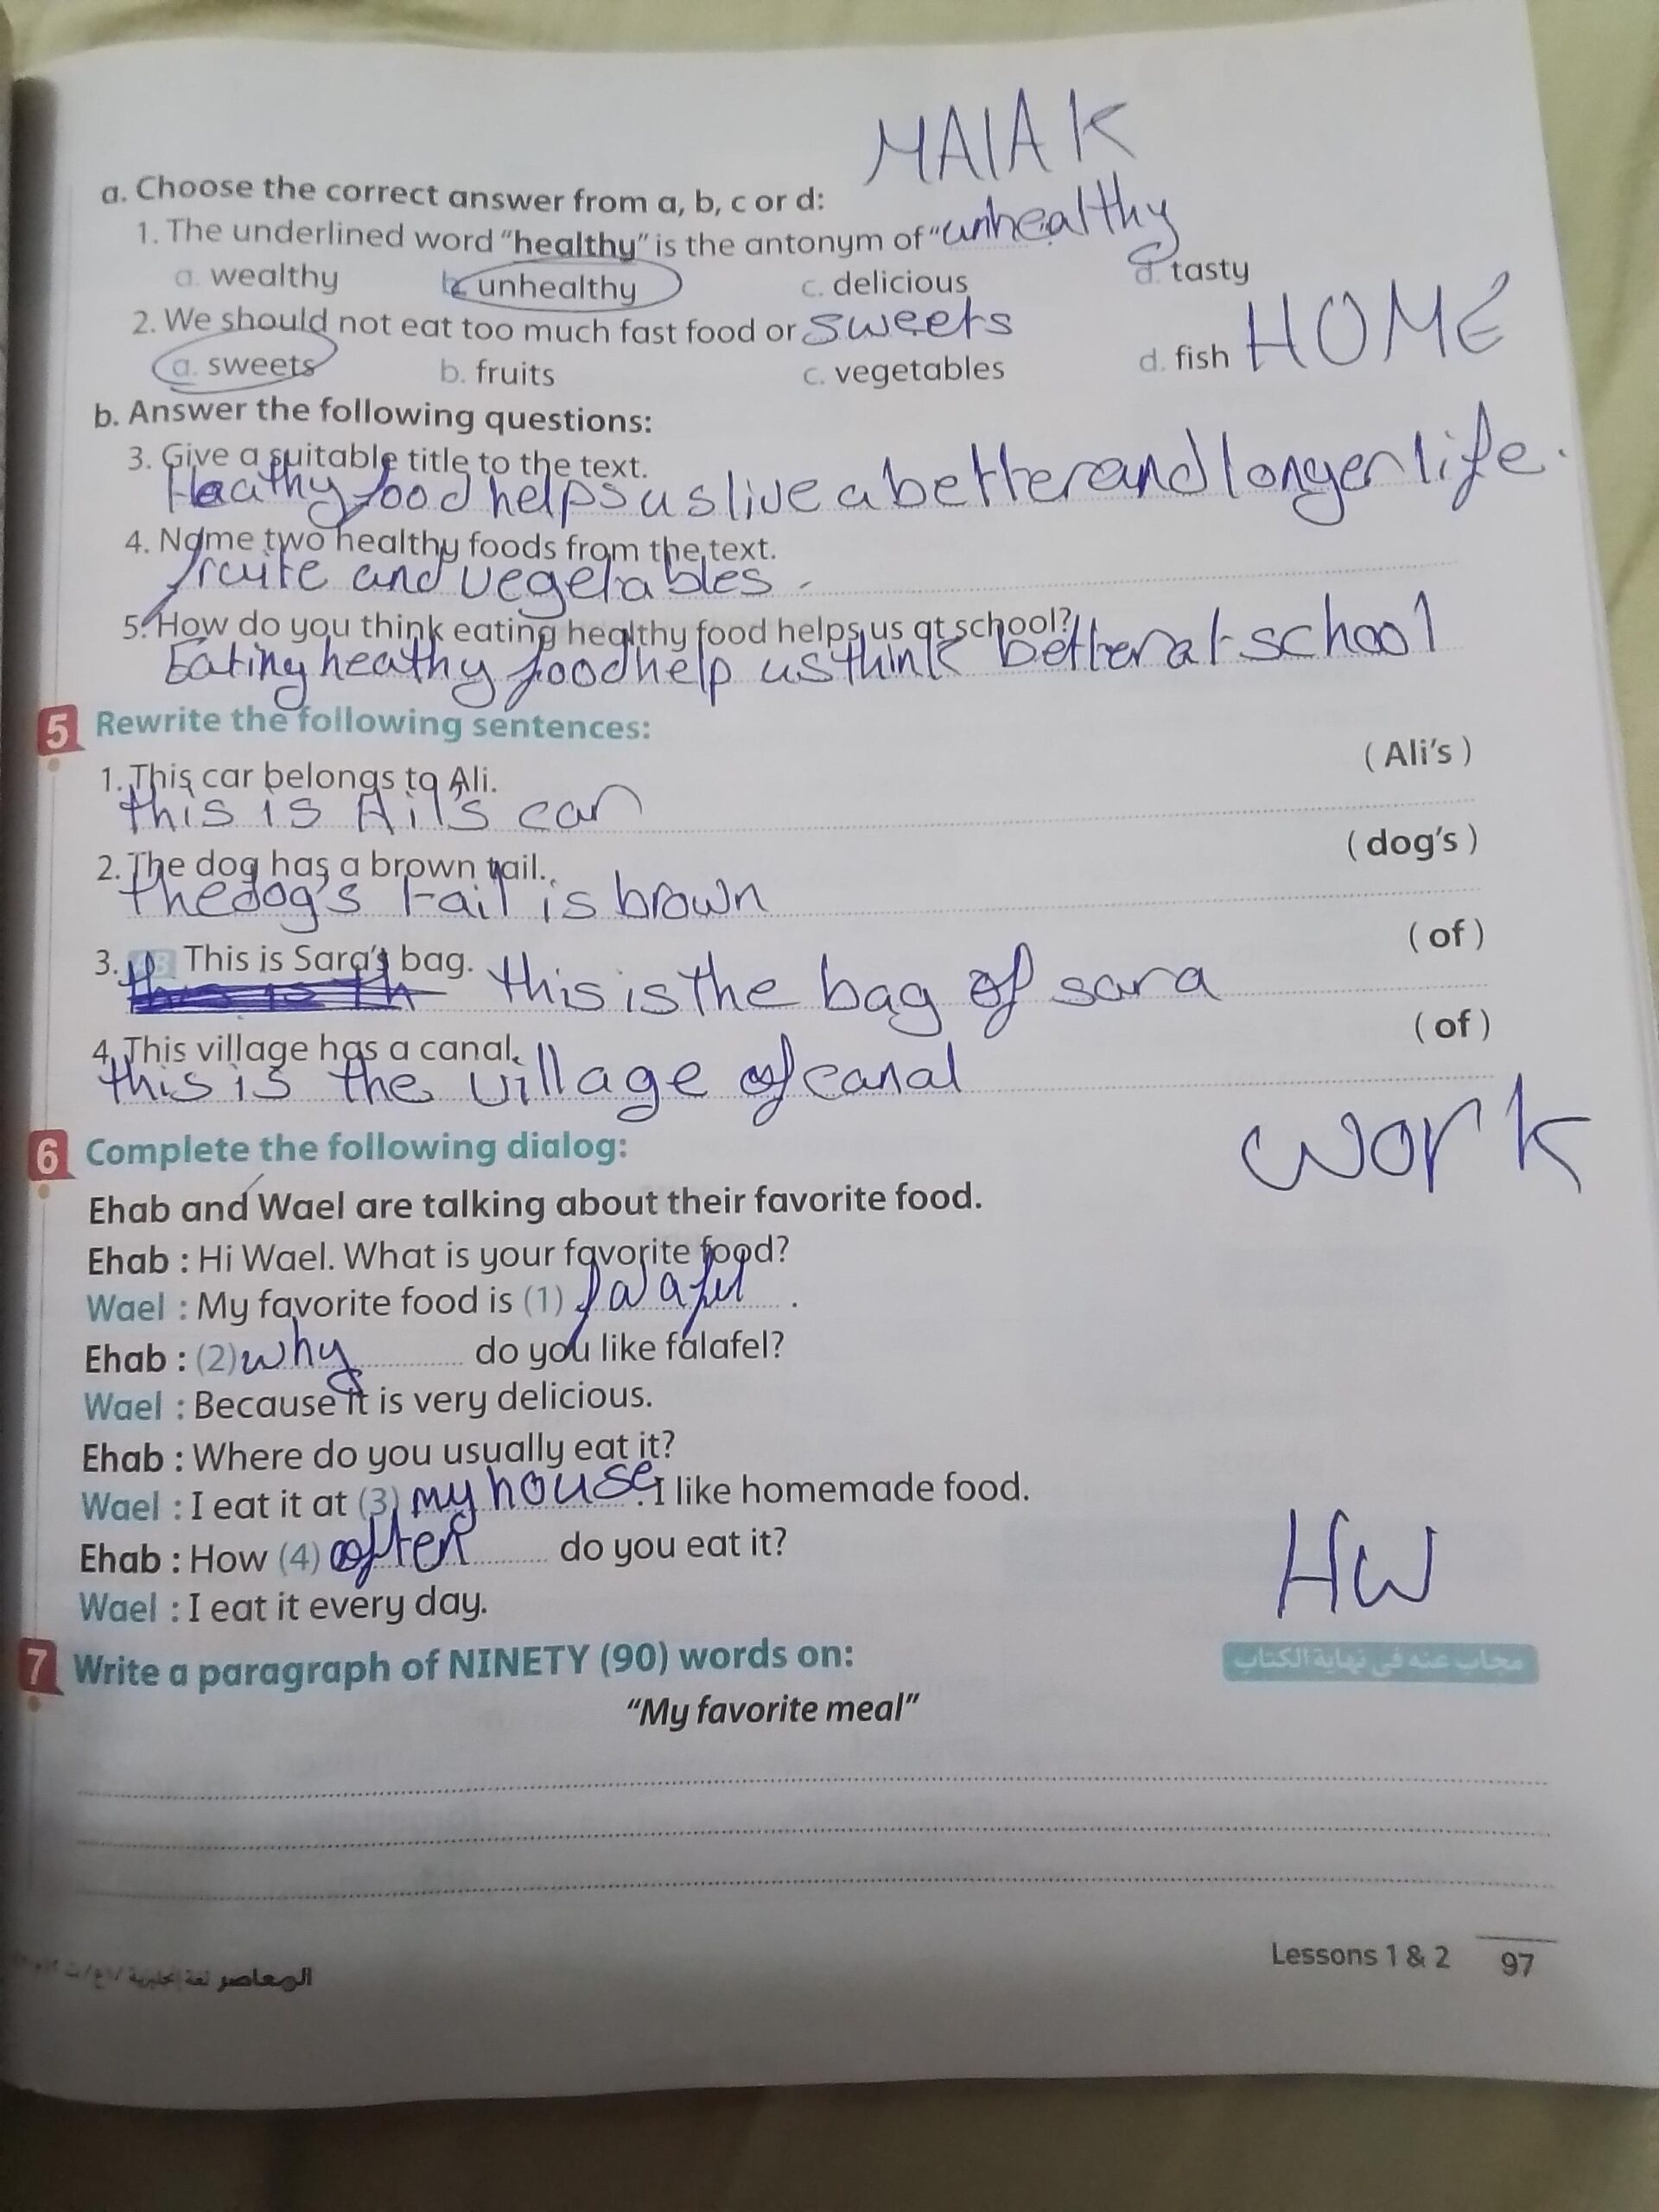 MAlAK
a. Choose the correct answer from a, b, c or d:
1. The underlined word "healthy" is the antonym of "unhealthy
a. wealthy b. unhealthy c. delicious d. tasty
2. We should not eat too much fast food or sweets
a. sweets b. fruits c. vegetables d. fish HOME
b. Answer the following questions:
3. Give a suitable title to the text.
Heathy food helps us live a better and longer life.
4. Name two healthy foods from the text.
and vegetables
5. How do you think eating healthy food helps us at school?
Eating heathy food help us think better at school
5 Rewrite the following sentences:
1. This car belongs to Ali. (Ali's)
this is Ail's car
2. The dog has a brown tail. (dog's)
the dog's tail is brown
3. This is Sara's bag. (of)
this is the bag of sara
4. This village has a canal. (of)
this is the village of canal
work
6 Complete the following dialog:
Ehab and Wael are talking about their favorite food.
Ehab : Hi Wael. What is your favorite food?
Wael : My favorite food is (1) .
Ehab : (2) why do you like falafel?
Wael : Because it is very delicious.
Ehab : Where do you usually eat it?
Wael : I eat it at (3) my house. I like homemade food.
Ehab : How (4) often do you eat it?
HW
Wael : I eat it every day.
7 Write a paragraph of NINETY (90) words on: مجاب عنه فى نهاية الكتاب
"My favorite meal"
Lessons 1 & 2 97
المعاصر لغة إنجليزية